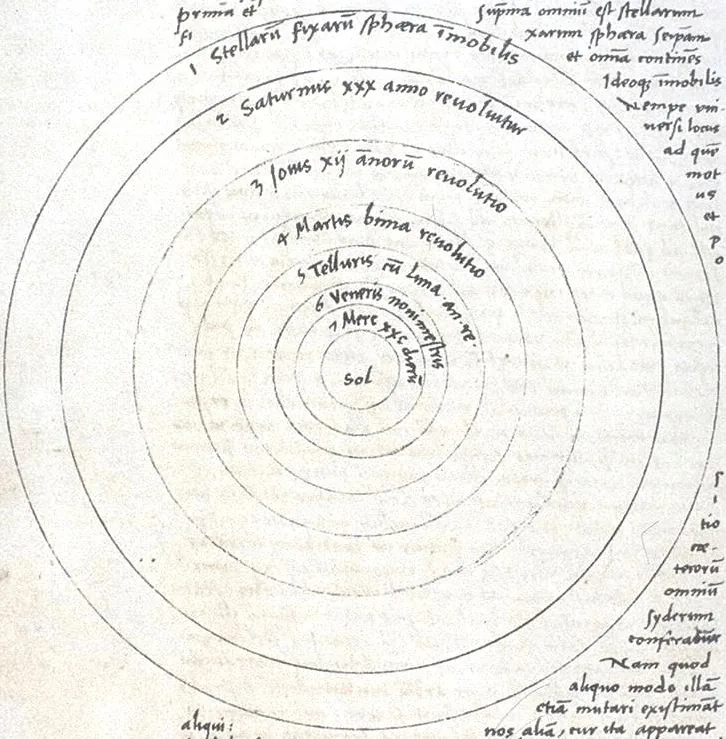 prima et
fi
sup̄ma omniū est stellarum
xarum sphæra seipam
et om̄ia continēs
Ideoqȝ īmobilis
Nempe vni-
versi locus
ad quē
mot
us
et
p
o
1 Stellarū fixarū sphæra īmobilis
2 Saturnus xxx anno revoluitur
3 Iovis xij annorū revolutio
4 Martis bima revolutio
5 Telluris cū Luna an· re
6 Veneris nonimestris
7 Merc xxc dierū
Sol
s
i
tio
cæ-
terorū
omniū
syderum
conferatur
Nam quod
aliquo modo illā
etiā mutari existimāt
aliqui:
nos aliā, cur ita appareat